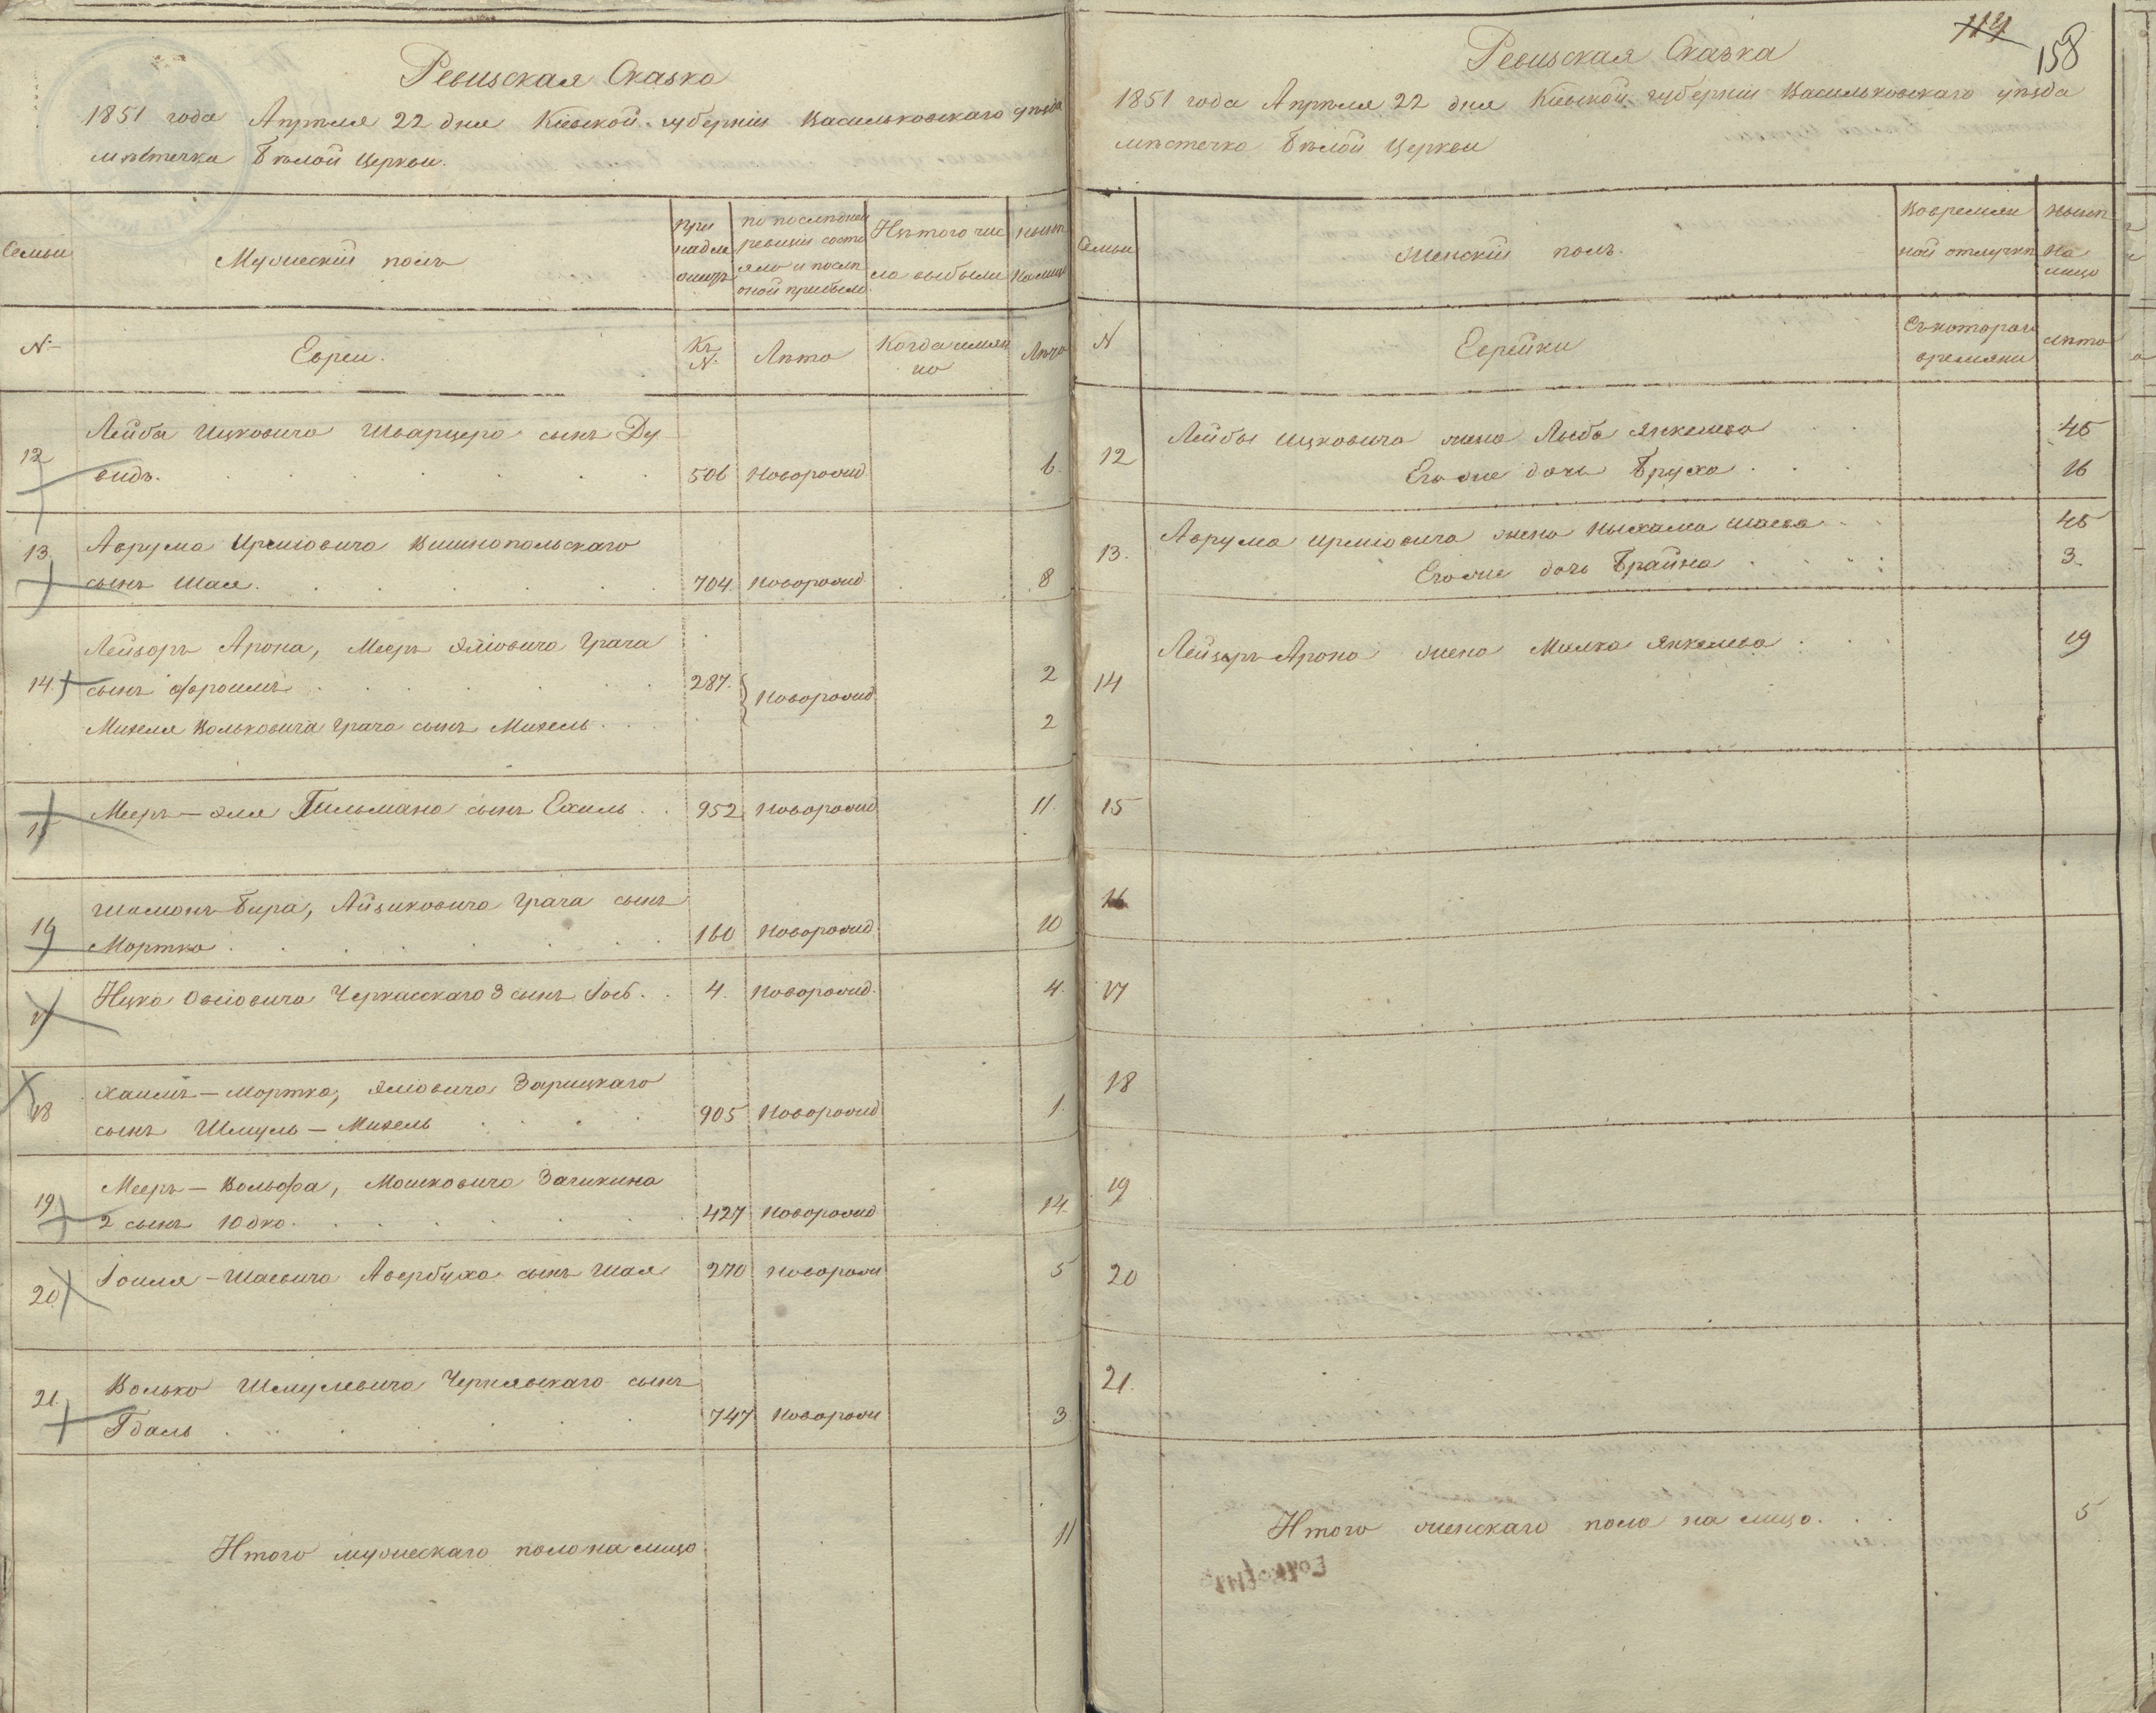 Ревизская Сказка
1851 года Апрѣля 22 дня Кіевской губерніи Васильковскаго уѣзда
мѣстечка Бѣлой Церкви.
Семьи
Мужескій полъ
При
надле
житъ
по послѣдней
ревизіи состо
яло и послѣ
оной прибыло
Изъ того чис
ла выбыли
нынѣ
на лицо
№
Евреи.
Къ
№
Лѣта
Когда имян
но
Лѣта
12
Лейба Ицковича Шварцера сынъ Ду
видъ. 506 Новорожд 6.
13.
Аврума Иршовича Вишнопольскаго
сынъ Шая. 704. Новорожд 8
Лейзоръ Арона, Мееръ Элiовича Грача
14. сынъ Фроимъ 287. Новорожд. 2
Михеля Вольковича Грача сынъ Михель 2
15 Мееръ - Эля Гильмана сынъ Ехиль 952 Новорожд 11.
Шимонъ-Бера, Айзиковича Грача сынъ
16 Мортко 160 Новорожд 10
17 Ицка Овсіовича Черкасскаго 3 сынъ Іосъ 4. Новорожд. 4.
Хаимъ - Мортка, Элiовича Зарицкаго
18 сынъ Шмуль - Михель 905 Новорожд 1.
Мееръ - Вольфа, Мошковича Загикина
19. 2 сынъ Юдко. 427 Новорожд 14.
20. Іоиля - Шаевича Авербуха сынъ Шая 270 Новорож 5
Волько Шмулевича Чернявскаго сынъ
21. Гдаль 747 Новорож 3
Итого мужескаго пола на лицо 11
114
158
Ревизская Сказка
1851 года Апрѣля 22 дня Кіевской губерніи Васильковскаго уѣзда
мѣстечка Бѣлой Церкви
Семьи
Женскій полъ.
Во времен
ной отлучкѣ
нынѣ
на
лицо
№
Еврейки
Съ котораго
времяни
Лѣта
12 Лейбы Ицковича жена Лыба Янкелева 45
Его же дочь Бруха 16
13. Аврума Иршовича жена Ныхама Шаева 45
Его же дочь Брайна 3.
14 Лейзеръ-Арона жена Милка Янкелева 19
15
16
17
18
19
20
21.
Итого женскаго пола на лицо. 5